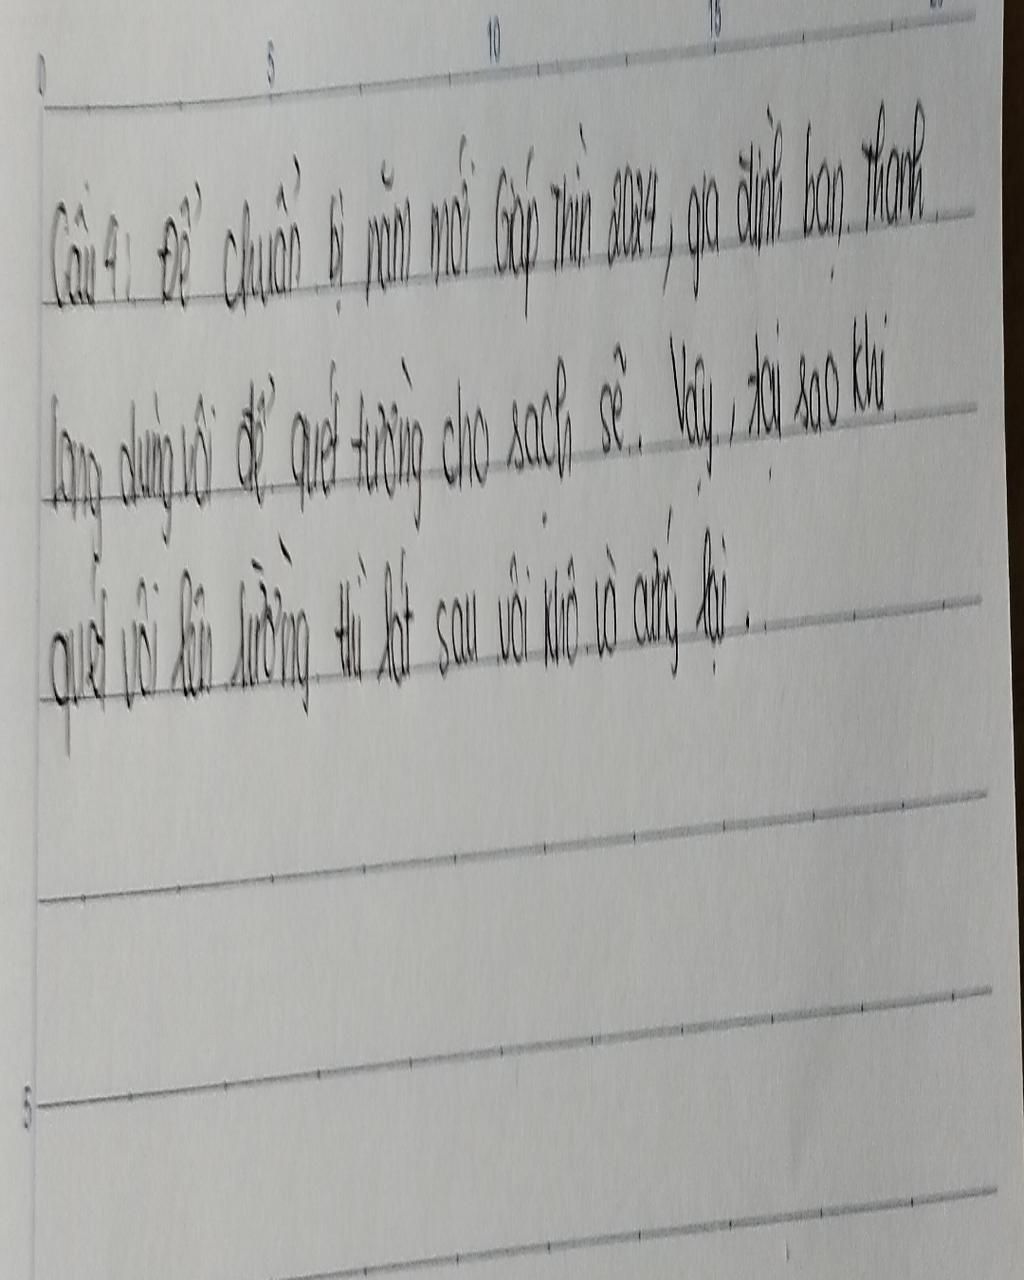 0 5 10 15 20
Câu 4: Để chuẩn bị năm mới Giáp Thìn 2024, gia đình bạn Thanh
Long dùng vôi để quét tường cho sạch sẽ. Vậy, tại sao khi
quét vôi lên tường thì lát sau vôi khô và cứng lại.
5